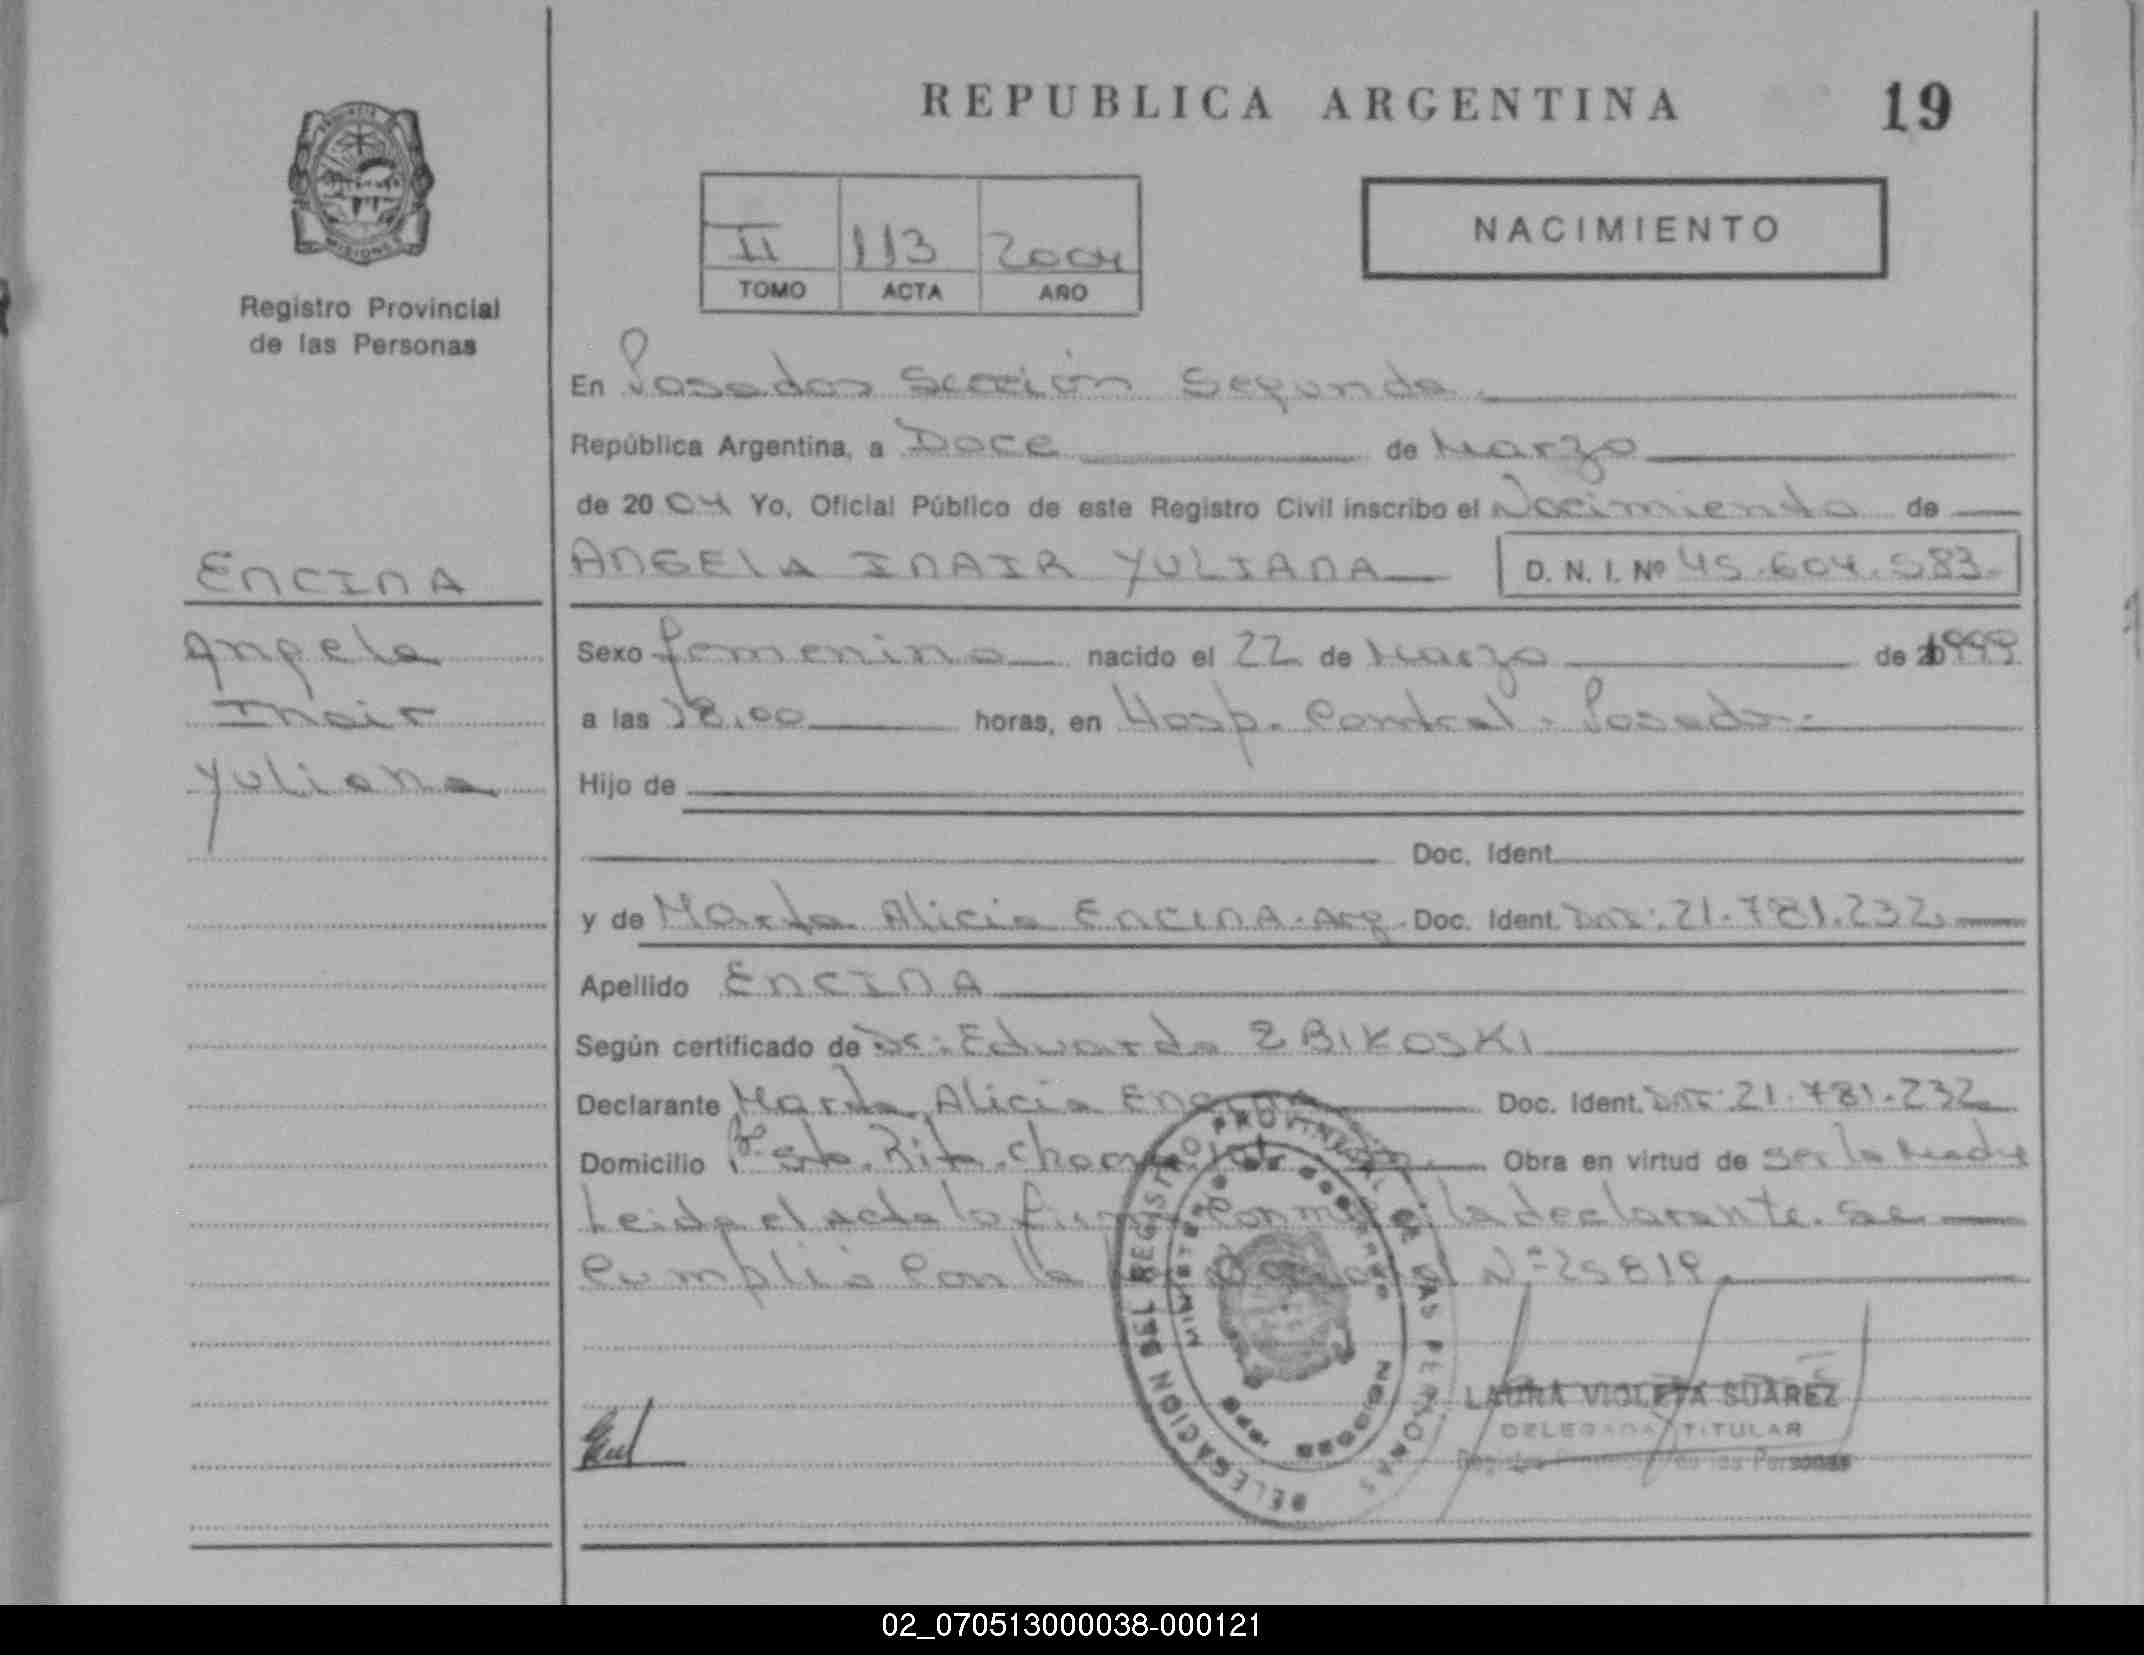 REPUBLICA ARGENTINA
19
MISIONES
Registro Provincial
de las Personas
II 113 2004
TOMO ACTA AÑO
NACIMIENTO
En Posadas Sección Segunda
República Argentina, a Doce de Marzo
de 2004 Yo, Oficial Público de este Registro Civil inscribo el Nacimiento de
ENCINA
ANGELA INAIR YULIANA D. N. I. Nº 45.604.583.
Angela
Inair
Yuliana
Sexo femenino nacido el 22 de Marzo de 1999
a las 18.00 horas, en Hosp. Central - Posadas
Hijo de
Doc. Ident.
y de Marta Alicia ENCINA. Arg. Doc. Ident. DNI: 21.781.232
Apellido ENCINA
Según certificado de Dr: Eduardo ZBIKOSKI
Declarante Marta Alicia Doc. Ident. DNI: 21.781.232
Domicilio Sta. Rita. Obra en virtud de ser la Madre
Leida el acta la firma conmigo la declarante. Se
Cumplió con la Nº 25819
DELEGACION DEL REGISTRO PROVINCIAL DE LAS PERSONAS
MINISTERIO DE GOBIERNO
MISIONES
LAURA VIOLETA SUAREZ
DELEGADA TITULAR
Registro Provincial de las Personas
02_070513000038-000121